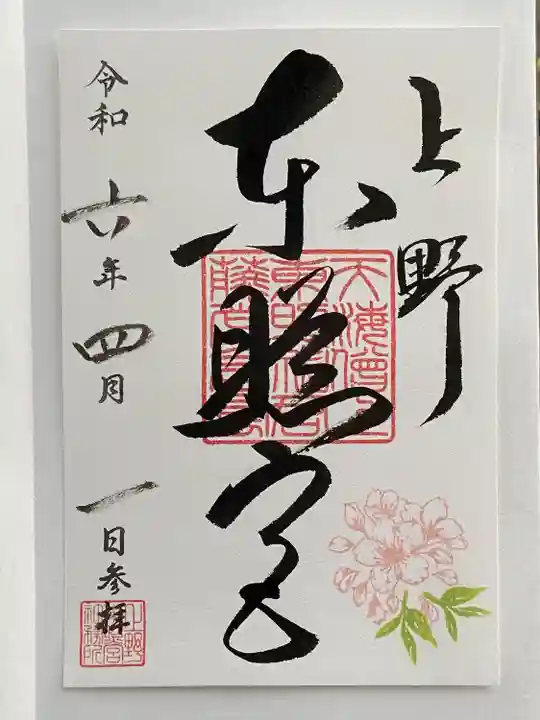 上野
東照宮
令和六年四月一日参拝